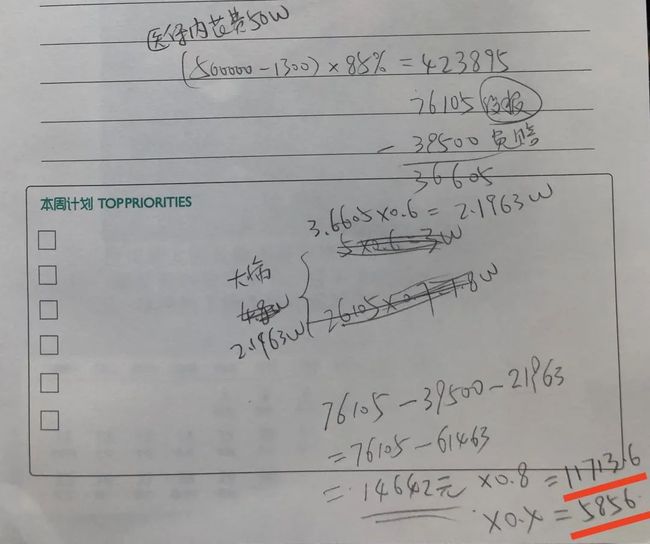 医保内花费50W
(500000-1300)×85%=423895
76105 没报
-39500 免赔
36605
本周计划 TOP PRIORITIES
3.6605×0.6=2.1963W
5×0.6=3W
大病
2.1963W
76105-39500-21963
=76105-61463
=14642元 ×0.8=11713.6
×0.4=5856